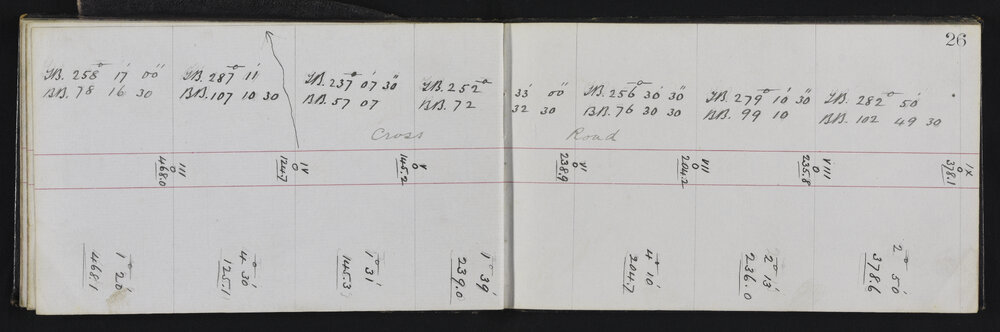 26
FB. 258° 17' 00"
BB. 78 16 30
FB. 287° 11'
BB. 107 10 30
FB. 237° 07' 30"
BB. 57 07
FB. 252° 33' 00"
BB. 72 32 30
FB. 256° 30' 30"
BB. 76 30 30
FB. 279° 10' 30"
BB. 99 10
FB. 282° 50'
BB. 102 49 30
Cross Road
III
0
468.0
IV
0
124.7
V
0
145.2
VI
0
238.9
VII
0
204.2
VIII
0
235.8
IX
0
378.1
1° 20'
468.1
4° 30'
125.1
1° 31'
145.3
1° 39'
239.0
4° 10'
204.7
2° 13'
236.0
2° 50'
378.6